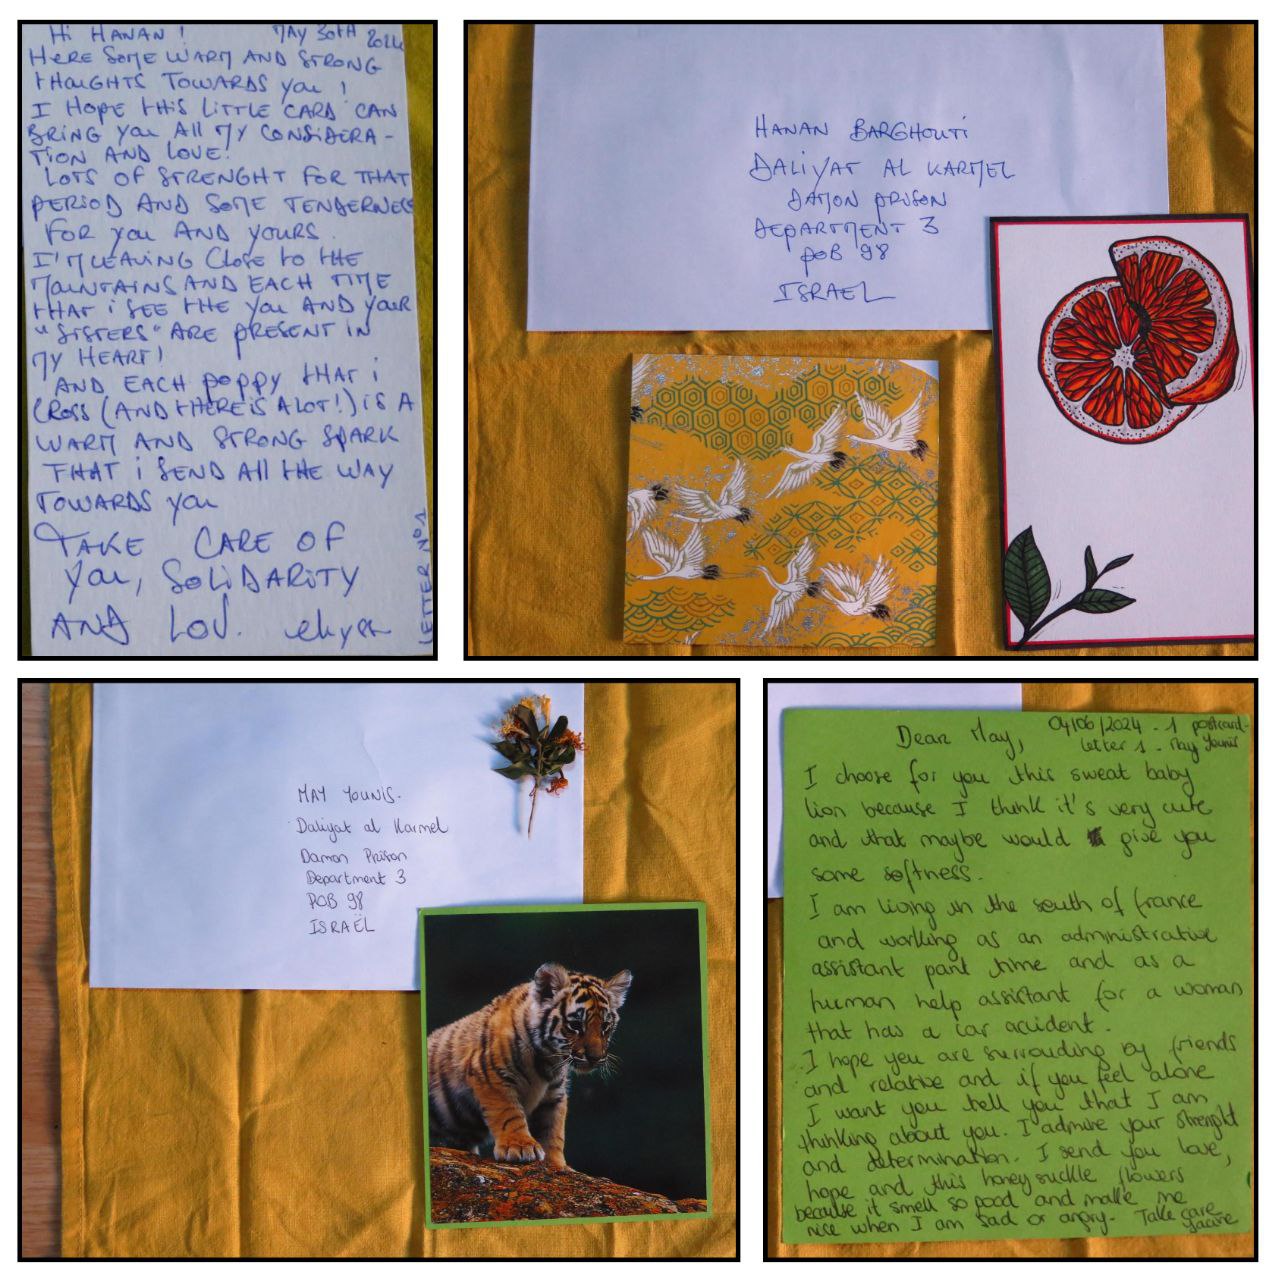 Hi HANAN ! MAY 30tH 2024
HERE SOME WARM AND STRONG
tHOUGHTS TOWARDS you !
I HOPE tHiS LittLE CARD CAN
BRING you ALL MY CONSIDERA-
TION AND LOVE.
LOTS OF STRENGHT FOR THAT
PERIOD AND SOME TENDERNESS
FOR you AND YOURS.
I'M LEAVING Close to tHE
MOUNTAINS AND EACH TIME
tHAt i SEE tHE you AND your
"SISTERS" ARE PRESENT IN
MY HEART!
AND EACH poppy tHAt i
CROSS (AND tHERE iS A LOT!) iS A
WARM AND STRONG SPARK
THAT i SEND All tHE WAY
TOWARDS you
TAKE CARE OF
you, SOLiDARiTY
AND LOV.
LETTER N°1
HANAN BARGHOUTi
DALiYAT AL KARMEL
DAMON pRiSON
DEpARTMENT 3
pOB 98
ISRAEL
MAY YOUNIS.
Daliyat al Karmel
Damon Prison
Department 3
POB 98
ISRAËL
Dear May, 04/06/2024 - 1 postcard-
letter 1 - May Younis
I choose for you this sweat baby
lion because I think it's very cute
and that maybe would give you
some softness.
I am living in the south of france
and working as an administrative
assistant part time and as a
human help assistant for a woman
that has a car accident.
I hope you are surrouding by friends
and relative and if you feel alone
I want you tell you that I am
thinking about you. I admire your strenght
and determination. I send you love,
hope and this honeysuckle flowers
because it smell so good and make me
nice when I am sad or angry. Take care